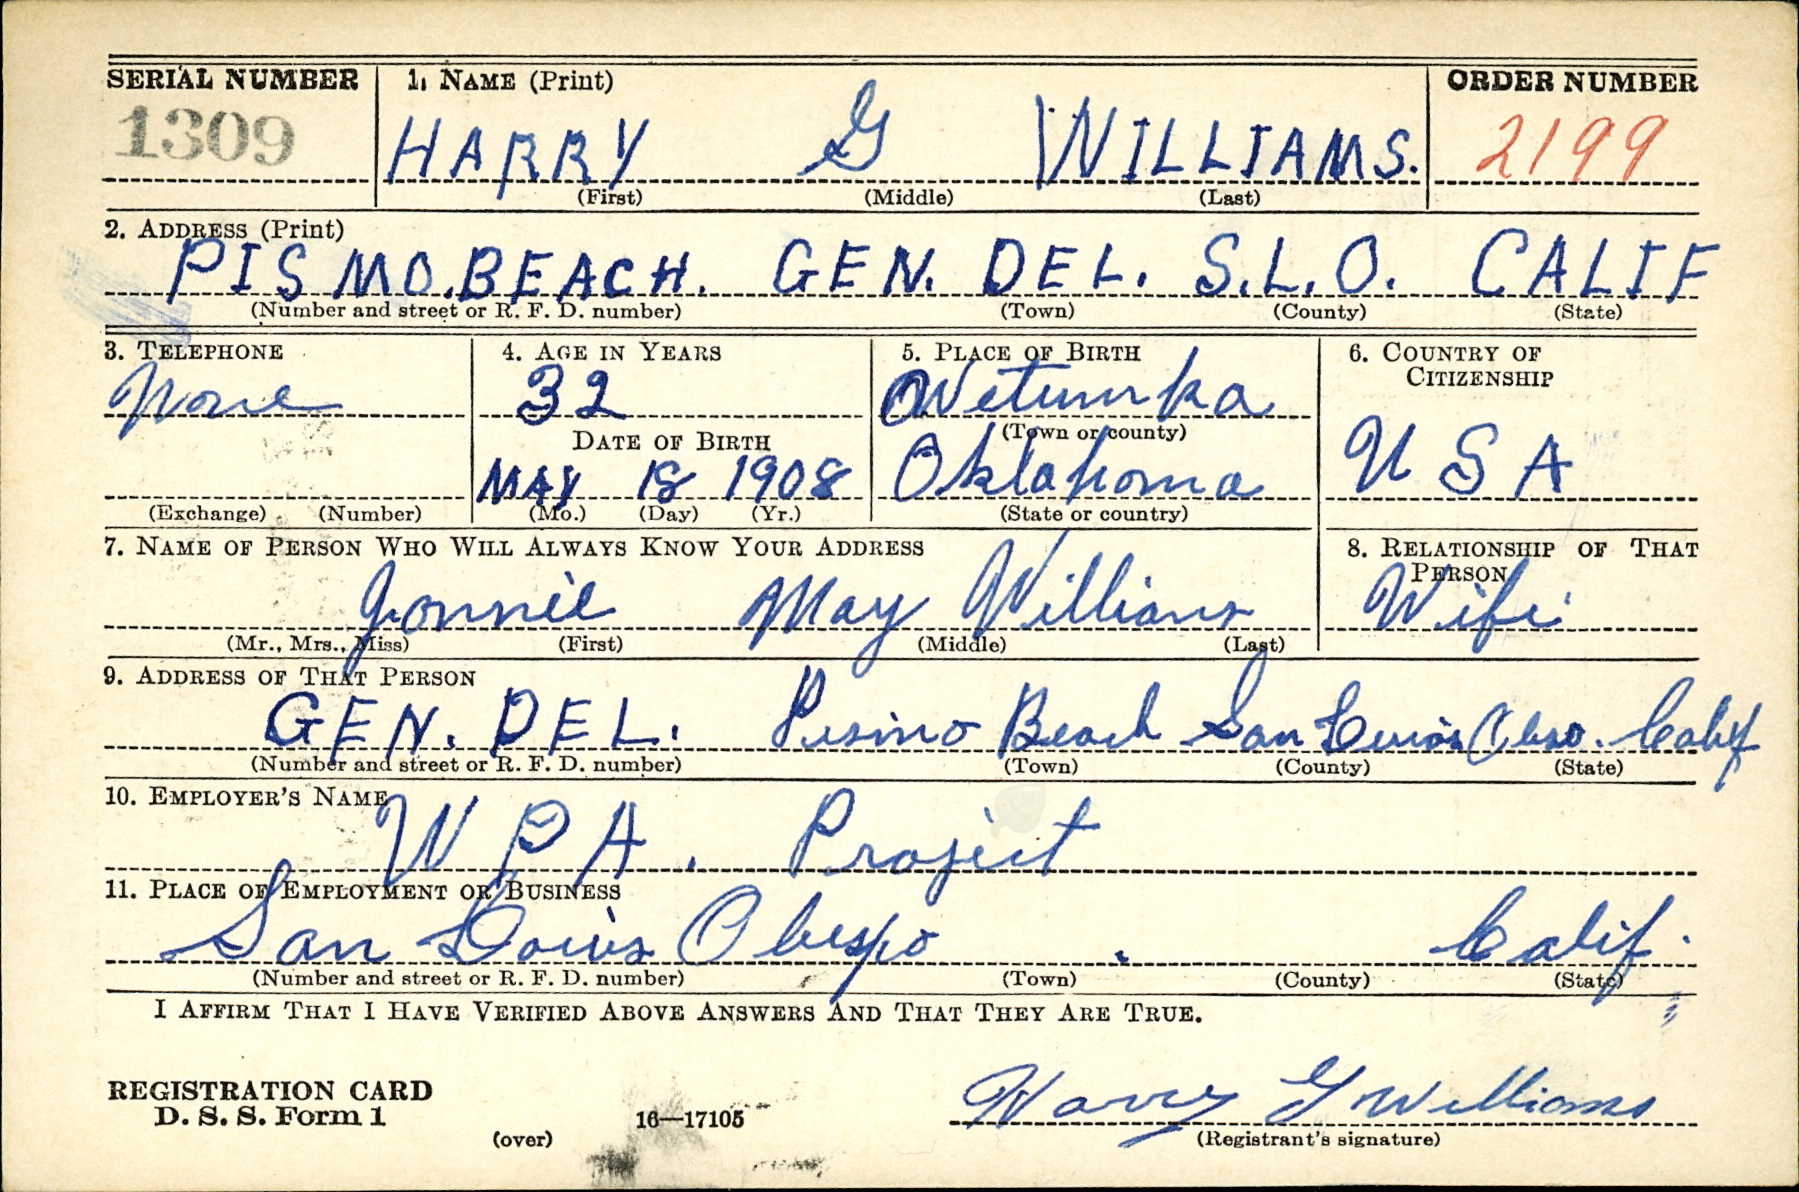 SERIAL NUMBER 1. NAME (Print) ORDER NUMBER
1309 HARRY G WILLIAMS. 2199
(First) (Middle) (Last)
2. ADDRESS (Print)
PISMO. BEACH. GEN. DEL. S.L.O. CALIF
(Number and street or R. F. D. number) (Town) (County) (State)
3. TELEPHONE 4. AGE IN YEARS 5. PLACE OF BIRTH 6. COUNTRY OF
CITIZENSHIP
None 32 Wetumka
DATE OF BIRTH (Town or county)
MAY 18 1908 Oklahoma U S A
(Exchange) (Number) (Mo.) (Day) (Yr.) (State or country)
7. NAME OF PERSON WHO WILL ALWAYS KNOW YOUR ADDRESS 8. RELATIONSHIP OF THAT
PERSON
Jonnie May Williams Wife
(Mr., Mrs., Miss) (First) (Middle) (Last)
9. ADDRESS OF THAT PERSON
GEN. DEL. Pismo Beach San Luis Calif
(Number and street or R. F. D. number) (Town) (County) (State)
10. EMPLOYER'S NAME
W P A. Project
11. PLACE OF EMPLOYMENT OR BUSINESS
San Louis Obespo . Calif.
(Number and street or R. F. D. number) (Town) (County) (State)
I AFFIRM THAT I HAVE VERIFIED ABOVE ANSWERS AND THAT THEY ARE TRUE.
REGISTRATION CARD
D. S. S. Form 1 16—17105 Harry G Williams
(over) (Registrant's signature)